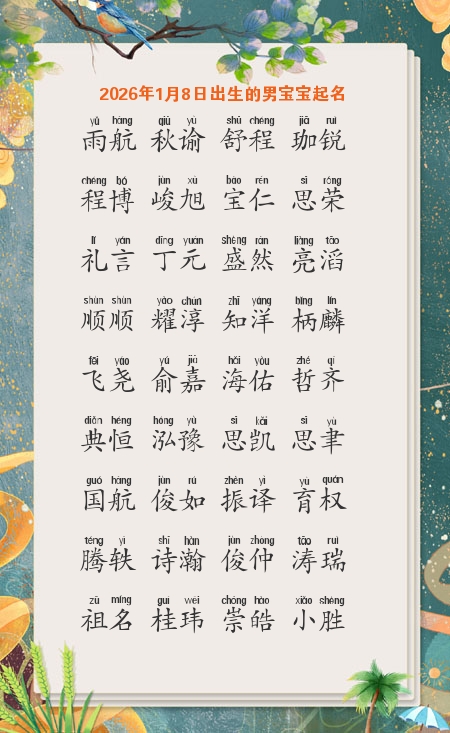 2026年1月8日出生的男宝宝起名
yǔ háng qiū yù shū chéng jiā ruì
雨航 秋谕 舒程 珈锐
chéng bó jùn xù bǎo rén sī róng
程博 峻旭 宝仁 思荣
lǐ yán dīng yuán shèng rán liàng tāo
礼言 丁元 盛然 亮滔
shùn shùn yào chún zhī yáng bǐng lín
顺顺 耀淳 知洋 柄麟
fēi yáo yú jiā hǎi yòu zhé qí
飞尧 俞嘉 海佑 哲齐
diǎn héng hóng yù sī kǎi sī yù
典恒 泓豫 思凯 思聿
guó háng jùn rú zhèn yì yù quán
国航 俊如 振译 育权
téng yì shī hàn jùn zhòng tāo ruì
腾轶 诗瀚 俊仲 涛瑞
zǔ míng guì wěi chóng hào xiǎo shèng
祖名 桂玮 崇皓 小胜